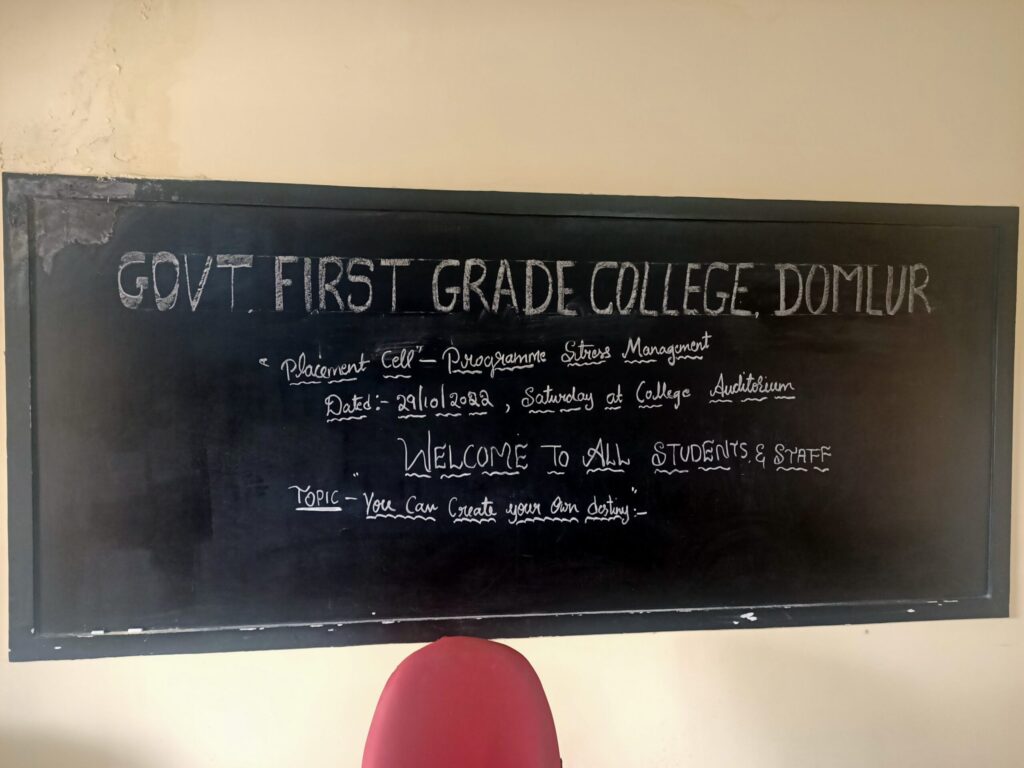 GOVT. FIRST GRADE COLLEGE, DOMLUR
"Placement Cell" – Programme Stress Management
Dated:- 29/10/2022, Saturday at College Auditorium
WELCOME TO ALL STUDENTS & STAFF
TOPIC – "You Can Create your Own destiny":-